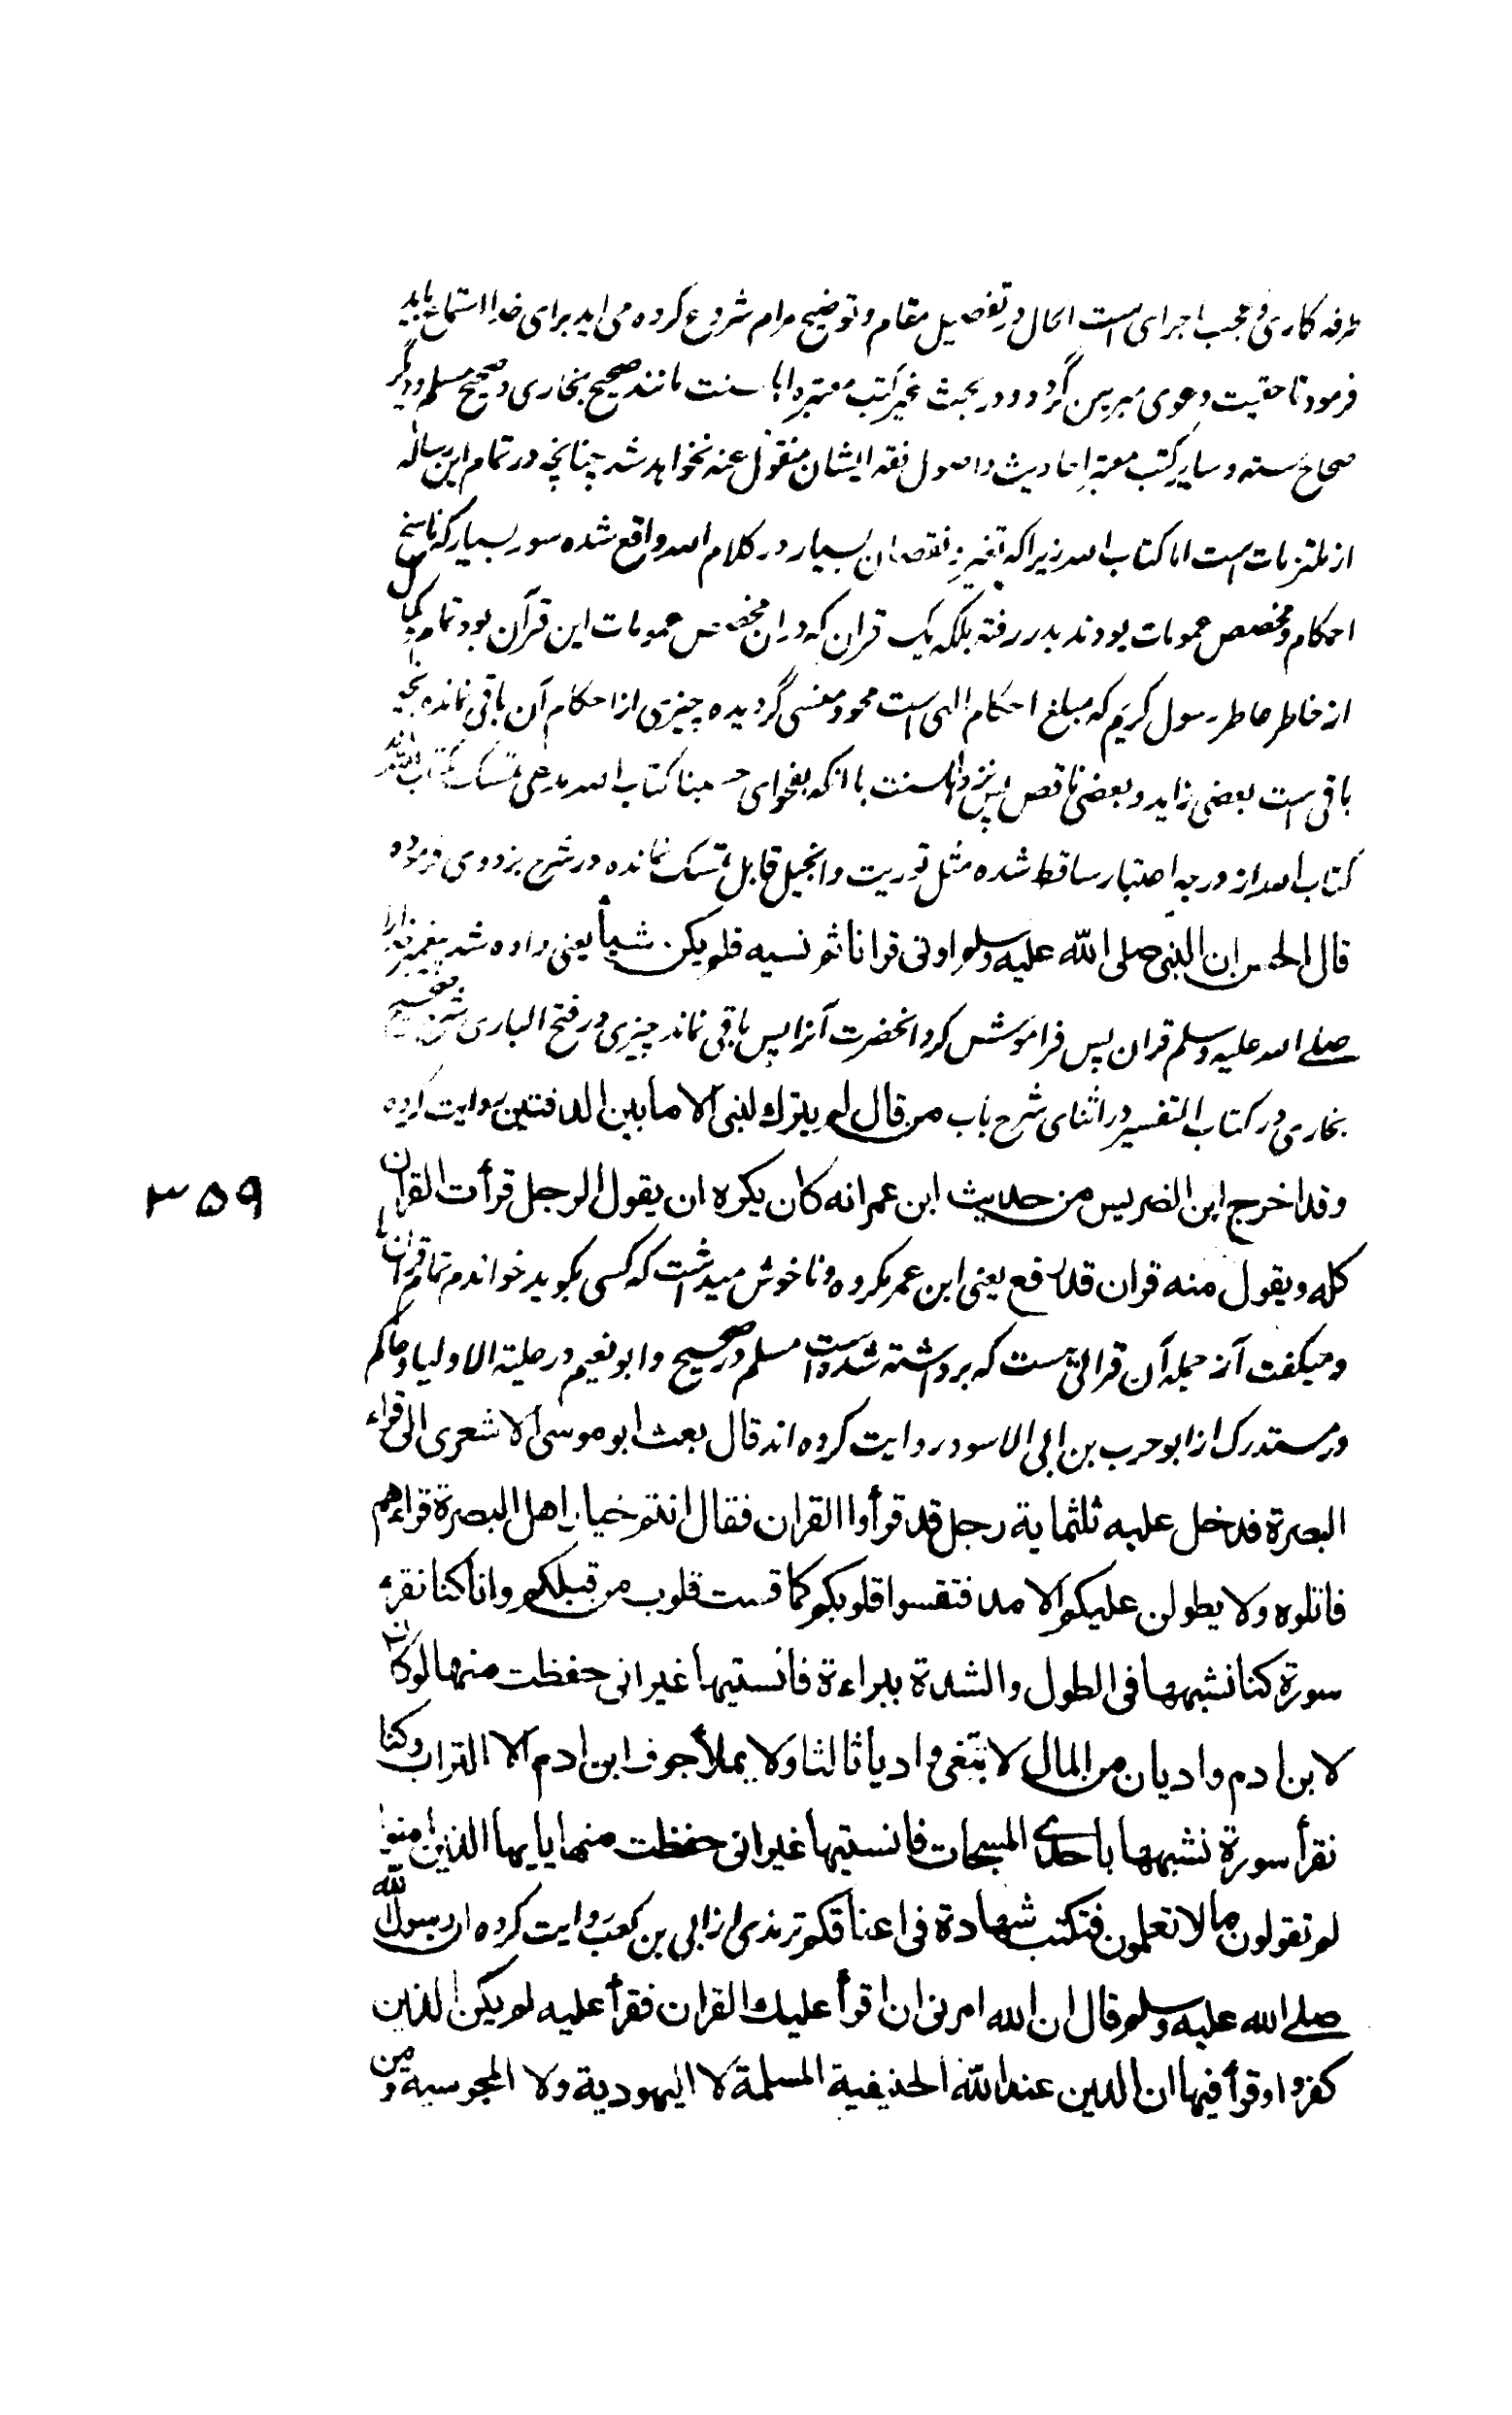 طرفه کاری و عجب اجرای است الحال در تفصیل مقام و توضیح مرام شروع کرده می اید برای خدا استماع باید
فرمود تا حقیت دعوی مبرهن گردد و در بحث غیر کتب معتبره اهل سنت مانند صحیح بخاری و صحیح مسلم و دیگر
صحاح سته و سایر کتب معتبر احادیث و اصول فقه ایشان منقول عنه نخواهد شد چنانچه در تمام این رساله
از ملتزمات است اما کتاب الله زیرا که تغیر و نقصان بسیار در کلام الله واقع شده سور بسیار که ناسخ
احکام و مخصص عمومات بودند بدر رفته بلکه یک قران که در ان مخصص عمومات این قرآن بود تمام و کمال
از خاطر عاطر رسول کریم که مبلغ احکام الهی است محو و منسی گردیده چیزی از احکام آن باقی نمانده انچه
باقی است بعضی زاید و بعضی ناقص پس نزد اهل سنت با انکه بفحوای حسبنا کتاب الله مدعی تمسک بکتاب الله اند
کتاب الله از درجه اعتبار ساقط شده مثل توریت و انجیل قابل تمسک نمانده در شرح بزدوی فرموده
قال الحسن ان النبی صلی الله علیه وسلم اوتی قرانا ثم نسیه فلم یکن شیأ یعنی داده شد پیغمبر خدا را
صلی الله علیه وسلم قران پس فراموش کرد انحضرت آنرا پس باقی نماند چیزی و در فتح الباری شرح صحیح
بخاری در کتاب التفسیر در اثنای شرح باب من قال لم یترك النبی الا ما بین الدفتین روایت کرده
وقد اخرج ابن الضریس من حدیث ابن عمر انه كان یكره ان یقول الرجل قرأت القران
كله ویقول منه قران قد رفع یعنی ابن عمر مکروه و ناخوش میداشت که کسی بگوید خواندم تمام قران را
و میگفت از جمله آن قرانی است که برداشته شده است مسلم در صحیح و ابو نعیم در حلیة الاولیا و حاکم
در مستدرک از ابو حرب بن ابی الاسود روایت کرده اند قال بعث ابو موسی الاشعری الی قراء
البصرة فدخل علیه ثلثمایة رجل قد قرأوا القران فقال انتم خیار اهل البصرة وقراءهم
فاتلوه ولا یطولن علیكم الامد فتقسوا قلوبكم كما قست قلوب من قبلكم وانا كنا نقرء
سورة كنا نشبهها فی الطول والشدة ببراءة فانستیها غیر انی حفظت منها لو كان
لابن ادم وادیان من المال لابتغی وادیا ثالثا ولا یملأ جوف ابن ادم الا التراب وكنا
نقرأ سورة نشبهها باحدی المسبحات فانستیها غیر انی حفظت منها یا یها الذین امنوا
لم تقولون مالا تعلمون فتكتب شهادة فی اعناقكم ترمذی از ابی بن کعب روایت کرده ان رسول الله
صلی الله علیه وسلم قال ان الله امرنی ان اقرأ علیك القران فقرأ علیه لم یكن الذین
كفروا وقرأ فیها ان الدین عند الله الحنیفیة المسلمة لا الیهودیة ولا المجوسیة ومن
۳۵۹